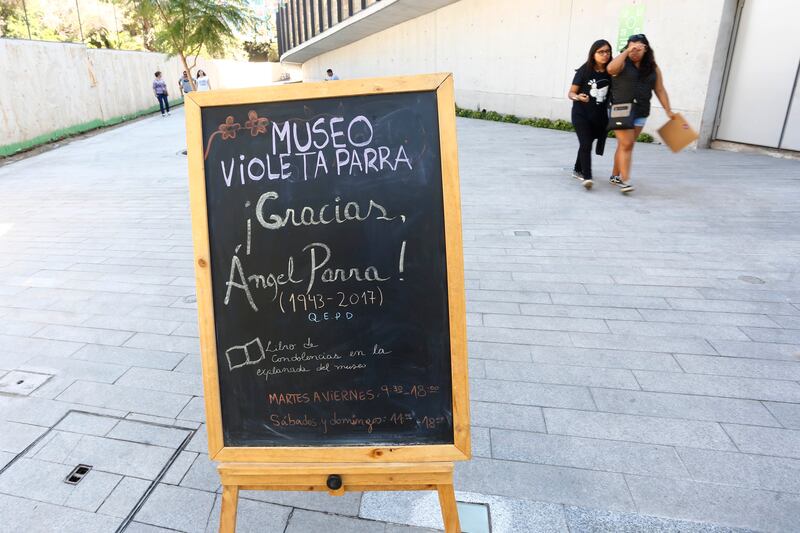 MUSEO
VIOLETA PARRA
¡Gracias,
Ángel Parra!
(1943-2017)
Q.E.P.D
Libro de
Condolencias en la
explanada del museo
MARTES A VIERNES. 9:30 - 18:00
Sábados y domingos: 11:00 - 18:00